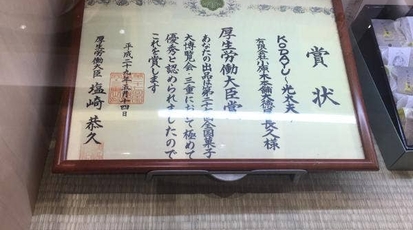 賞状
KODAYU 光太夫
長久様
厚生労働大臣賞
あなたの出品は第二十七回全国菓子
大博覧会・三重において極めて
優秀と認められましたので
これを賞します
平成二十九年五月十四日
厚生労働大臣 塩崎恭久